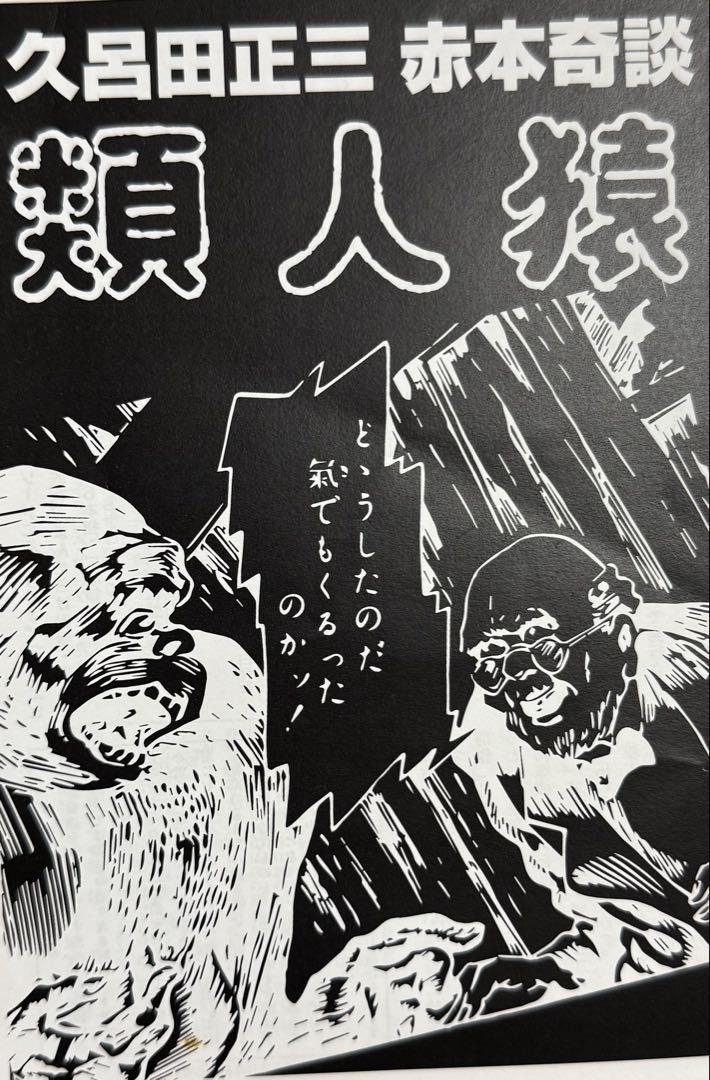 久呂田正三 赤本奇談
類人猿
どゝうしたのだ
氣でもくるった
のかッ！